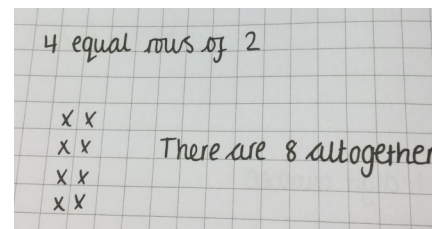 4 equal rows of 2
x x
x x There are 8 altogether
x x
x x